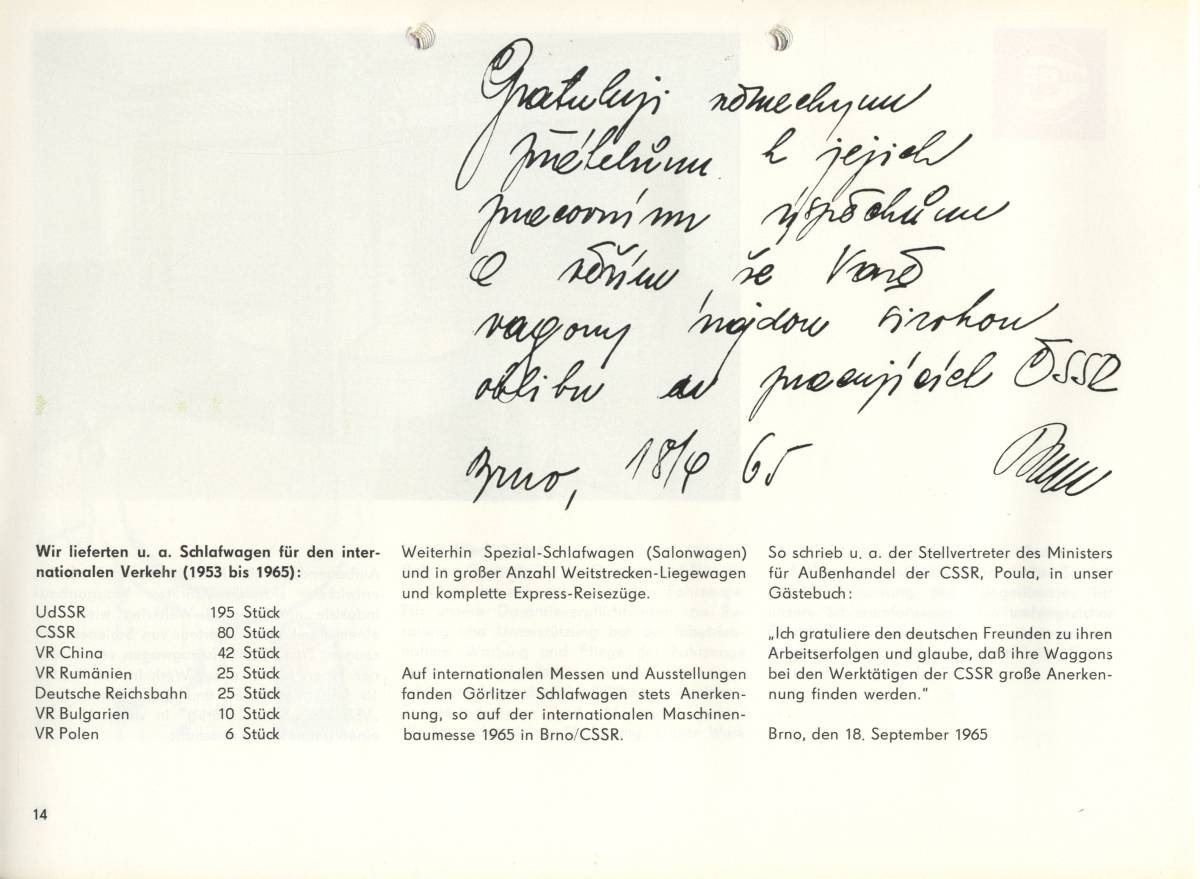 Gratuluji německým
přátelům k jejich
pracovním úspěchům
a věřím, že Vaše
vagony najdou širokou
oblibu u pracujících ČSSR
Brno, 18/9 65
Wir lieferten u. a. Schlafwagen für den inter-
nationalen Verkehr (1953 bis 1965):
UdSSR 195 Stück
CSSR 80 Stück
VR China 42 Stück
VR Rumänien 25 Stück
Deutsche Reichsbahn 25 Stück
VR Bulgarien 10 Stück
VR Polen 6 Stück
Weiterhin Spezial-Schlafwagen (Salonwagen)
und in großer Anzahl Weitstrecken-Liegewagen
und komplette Express-Reisezüge.
Auf internationalen Messen und Ausstellungen
fanden Görlitzer Schlafwagen stets Anerken-
nung, so auf der internationalen Maschinen-
baumesse 1965 in Brno/CSSR.
So schrieb u. a. der Stellvertreter des Ministers
für Außenhandel der CSSR, Poula, in unser
Gästebuch:
„Ich gratuliere den deutschen Freunden zu ihren
Arbeitserfolgen und glaube, daß ihre Waggons
bei den Werktätigen der CSSR große Anerken-
nung finden werden.“
Brno, den 18. September 1965
14